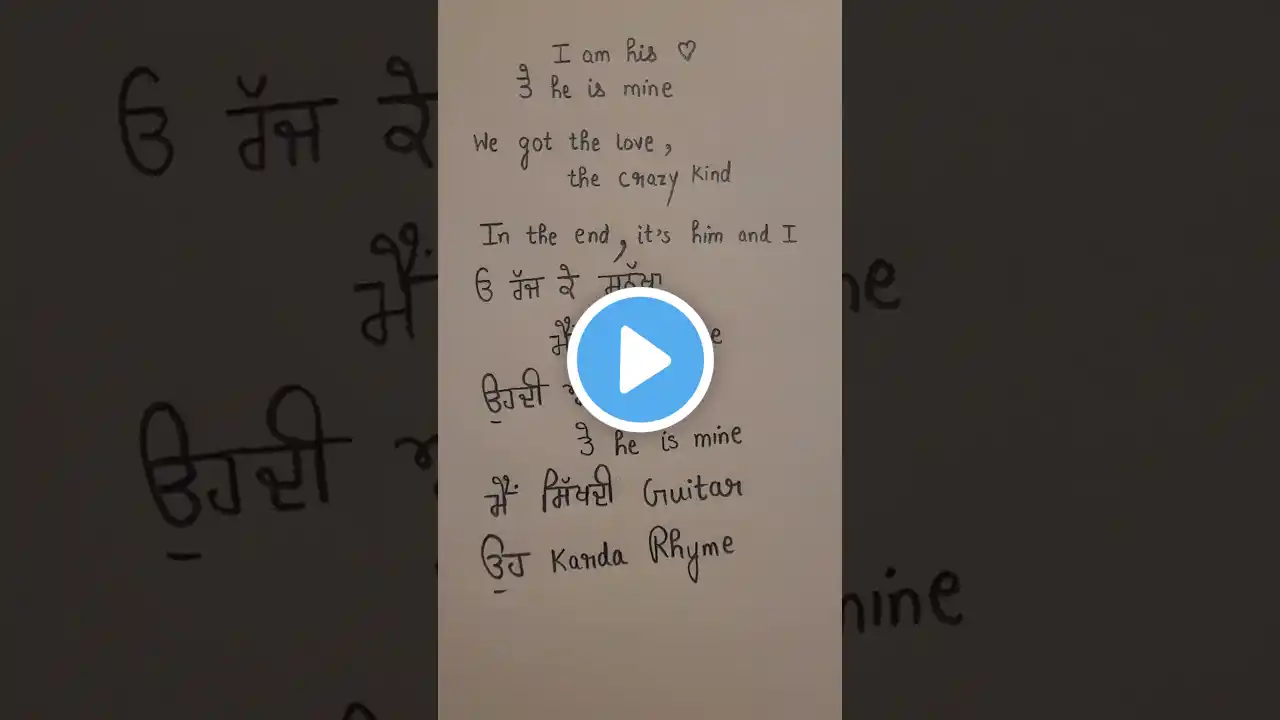 I am his ♡
ਤੇ he is mine
We got the love,
the crazy kind
In the end, it's him and I
ਓ ਰੱਜ ਕੇ ਸੁਨੱਖਾ
ਮੈਂ
ਉਹਦੀ
ਤੇ he is mine
ਮੈਂ ਸਿੱਖਦੀ Guitar
ਉਹ Karda Rhyme